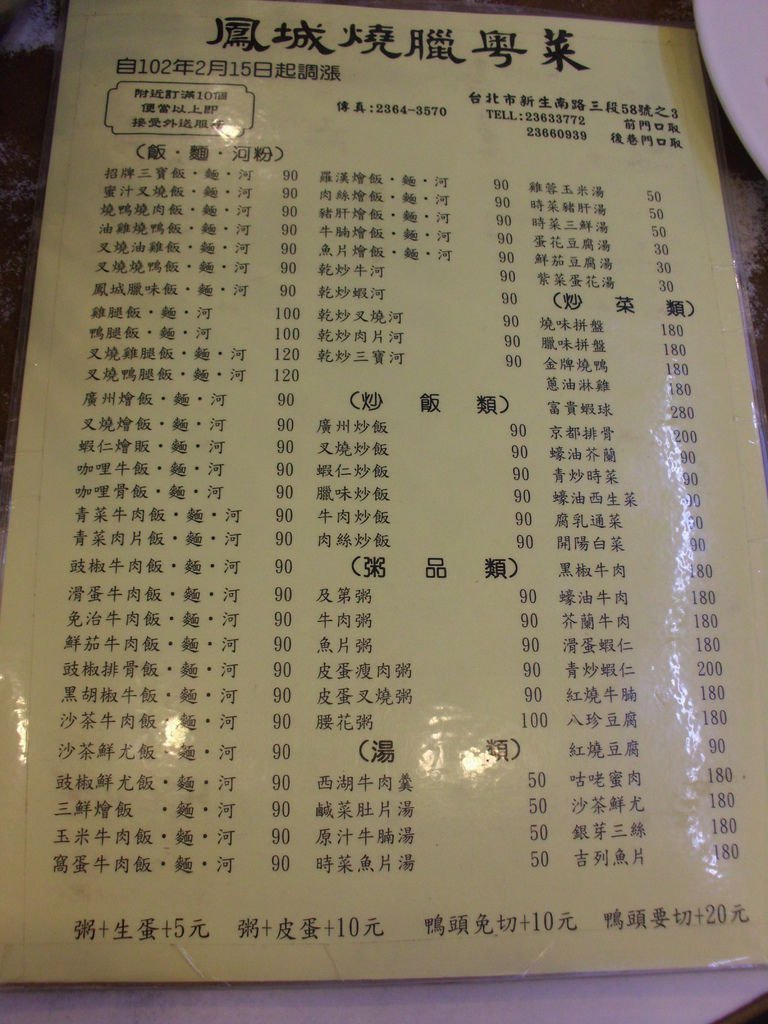 鳳城燒臘粵菜
自102年2月15日起調漲
附近訂滿10個
便當以上即
接受外送服務
傳真:2364-3570
台北市新生南路三段58號之3
TELL:23633772 前門口取
23660939 後巷門口取
(飯·麵·河粉)
招牌三寶飯·麵·河 90
蜜汁叉燒飯·麵·河 90
燒鴨燒肉飯·麵·河 90
油雞燒鴨飯·麵·河 90
叉燒油雞飯·麵·河 90
叉燒燒鴨飯·麵·河 90
鳳城臘味飯·麵·河 90
雞腿飯·麵·河 100
鴨腿飯·麵·河 100
叉燒雞腿飯·麵·河 120
叉燒鴨腿飯·麵·河 120
廣州燴飯·麵·河 90
叉燒燴飯·麵·河 90
蝦仁燴販·麵·河 90
咖哩牛飯·麵·河 90
咖哩骨飯·麵·河 90
青菜牛肉飯·麵·河 90
青菜肉片飯·麵·河 90
豉椒牛肉飯·麵·河 90
滑蛋牛肉飯·麵·河 90
免治牛肉飯·麵·河 90
鮮茄牛肉飯·麵·河 90
豉椒排骨飯·麵·河 90
黑胡椒牛飯·麵·河 90
沙茶牛肉飯·麵·河 90
沙茶鮮尤飯·麵·河 90
豉椒鮮尤飯·麵·河 90
三鮮燴飯 ·麵·河 90
玉米牛肉飯·麵·河 90
窩蛋牛肉飯·麵·河 90
羅漢燴飯·麵·河 90
肉絲燴飯·麵·河 90
豬肝燴飯·麵·河 90
牛腩燴飯·麵·河 90
魚片燴飯·麵·河 90
乾炒牛河 90
乾炒蝦河 90
乾炒叉燒河 90
乾炒肉片河 90
乾炒三寶河 90
(炒飯類)
廣州炒飯 90
叉燒炒飯 90
蝦仁炒飯 90
臘味炒飯 90
牛肉炒飯 90
肉絲炒飯 90
(粥品類)
及第粥 90
牛肉粥 90
魚片粥 90
皮蛋瘦肉粥 90
皮蛋叉燒粥 90
腰花粥 100
(湯 類)
西湖牛肉羹 50
鹹菜肚片湯 50
原汁牛腩湯 50
時菜魚片湯 50
雞蓉玉米湯 50
時菜豬肝湯 50
時菜三鮮湯 50
蛋花豆腐湯 30
鮮茄豆腐湯 30
紫菜蛋花湯 30
(炒菜類)
燒味拼盤 180
臘味拼盤 180
金牌燒鴨 180
蔥油淋雞 180
富貴蝦球 280
京都排骨 200
蠔油芥蘭 90
青炒時菜 90
蠔油西生菜 90
腐乳通菜 90
開陽白菜 90
黑椒牛肉 180
蠔油牛肉 180
芥蘭牛肉 180
滑蛋蝦仁 180
青炒蝦仁 200
紅燒牛腩 180
八珍豆腐 180
紅燒豆腐 90
咕咾蜜肉 180
沙茶鮮尤 180
銀芽三絲 180
吉列魚片 180
粥+生蛋+5元 粥+皮蛋+10元 鴨頭免切+10元 鴨頭要切+20元